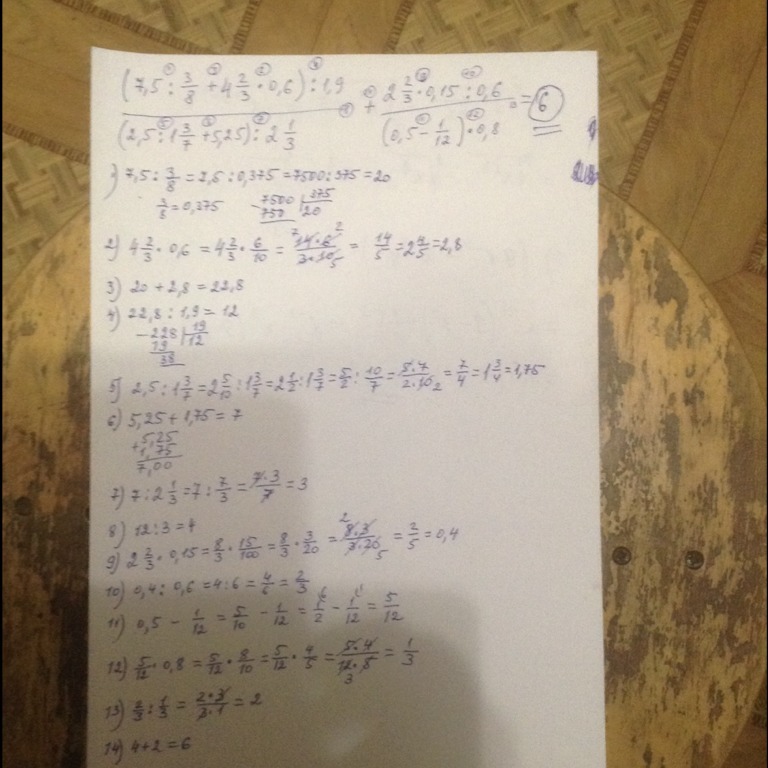 (7,5 : 3/8 + 4 2/3 · 0,6) : 1,9 / (2,5 : 1 3/7 + 5,25) : 2 1/3 + 2 2/3 · 0,15 : 0,6 / (0,5 - 1/12) · 0,8 = 6
1) 7,5 : 3/8 = 7,5 : 0,375 = 7500 : 375 = 20
3/8 = 0,375
7500 | 375
750 | 20
2) 4 2/3 · 0,6 = 4 2/3 · 6/10 = 14·6/3·10 = 14/5 = 2 4/5 = 2,8
3) 20 + 2,8 = 22,8
4) 22,8 : 1,9 = 12
-228 | 19
19 | 12
38
5) 2,5 : 1 3/7 = 2 5/10 : 1 3/7 = 2 1/2 : 1 3/7 = 5/2 : 10/7 = 5·7/2·10 = 7/4 = 1 3/4 = 1,75
6) 5,25 + 1,75 = 7
5,25
+1,75
7,00
7) 7 : 2 1/3 = 7 : 7/3 = 7·3/7 = 3
8) 12 : 3 = 4
9) 2 2/3 · 0,15 = 8/3 · 15/100 = 8/3 · 3/20 = 8·3/3·20 = 2/5 = 0,4
10) 0,4 : 0,6 = 4 : 6 = 4/6 = 2/3
11) 0,5 - 1/12 = 5/10 - 1/12 = 1/2 - 1/12 = 5/12
12) 5/12 · 0,8 = 5/12 · 8/10 = 5/12 · 4/5 = 5·4/12·5 = 1/3
13) 2/3 : 1/3 = 2·3/3·1 = 2
14) 4 + 2 = 6